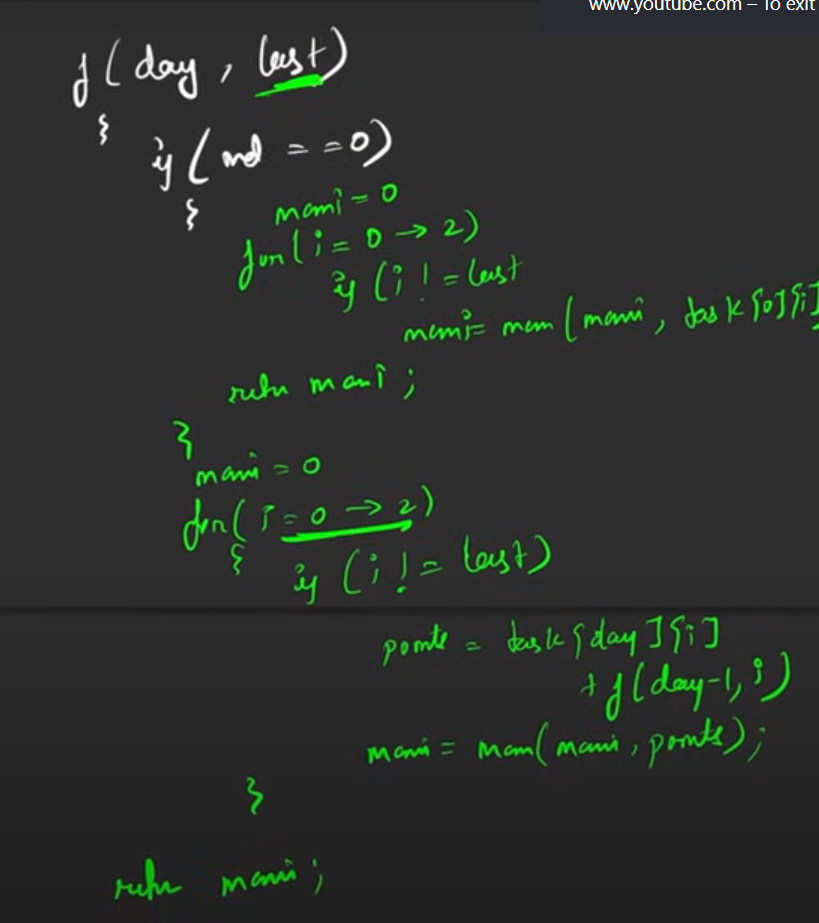 www.youtube.com – To exit
f(day, last)
{
if(ind == 0)
{
maxi = 0
for(i = 0 → 2)
if(i != last
maxi = max(maxi, task[0][i]
return maxi;
}
maxi = 0
for(i = 0 → 2)
{
if(i != last)
points = task[day][i]
+ f(day-1, i)
maxi = max(maxi, points);
}
return maxi;